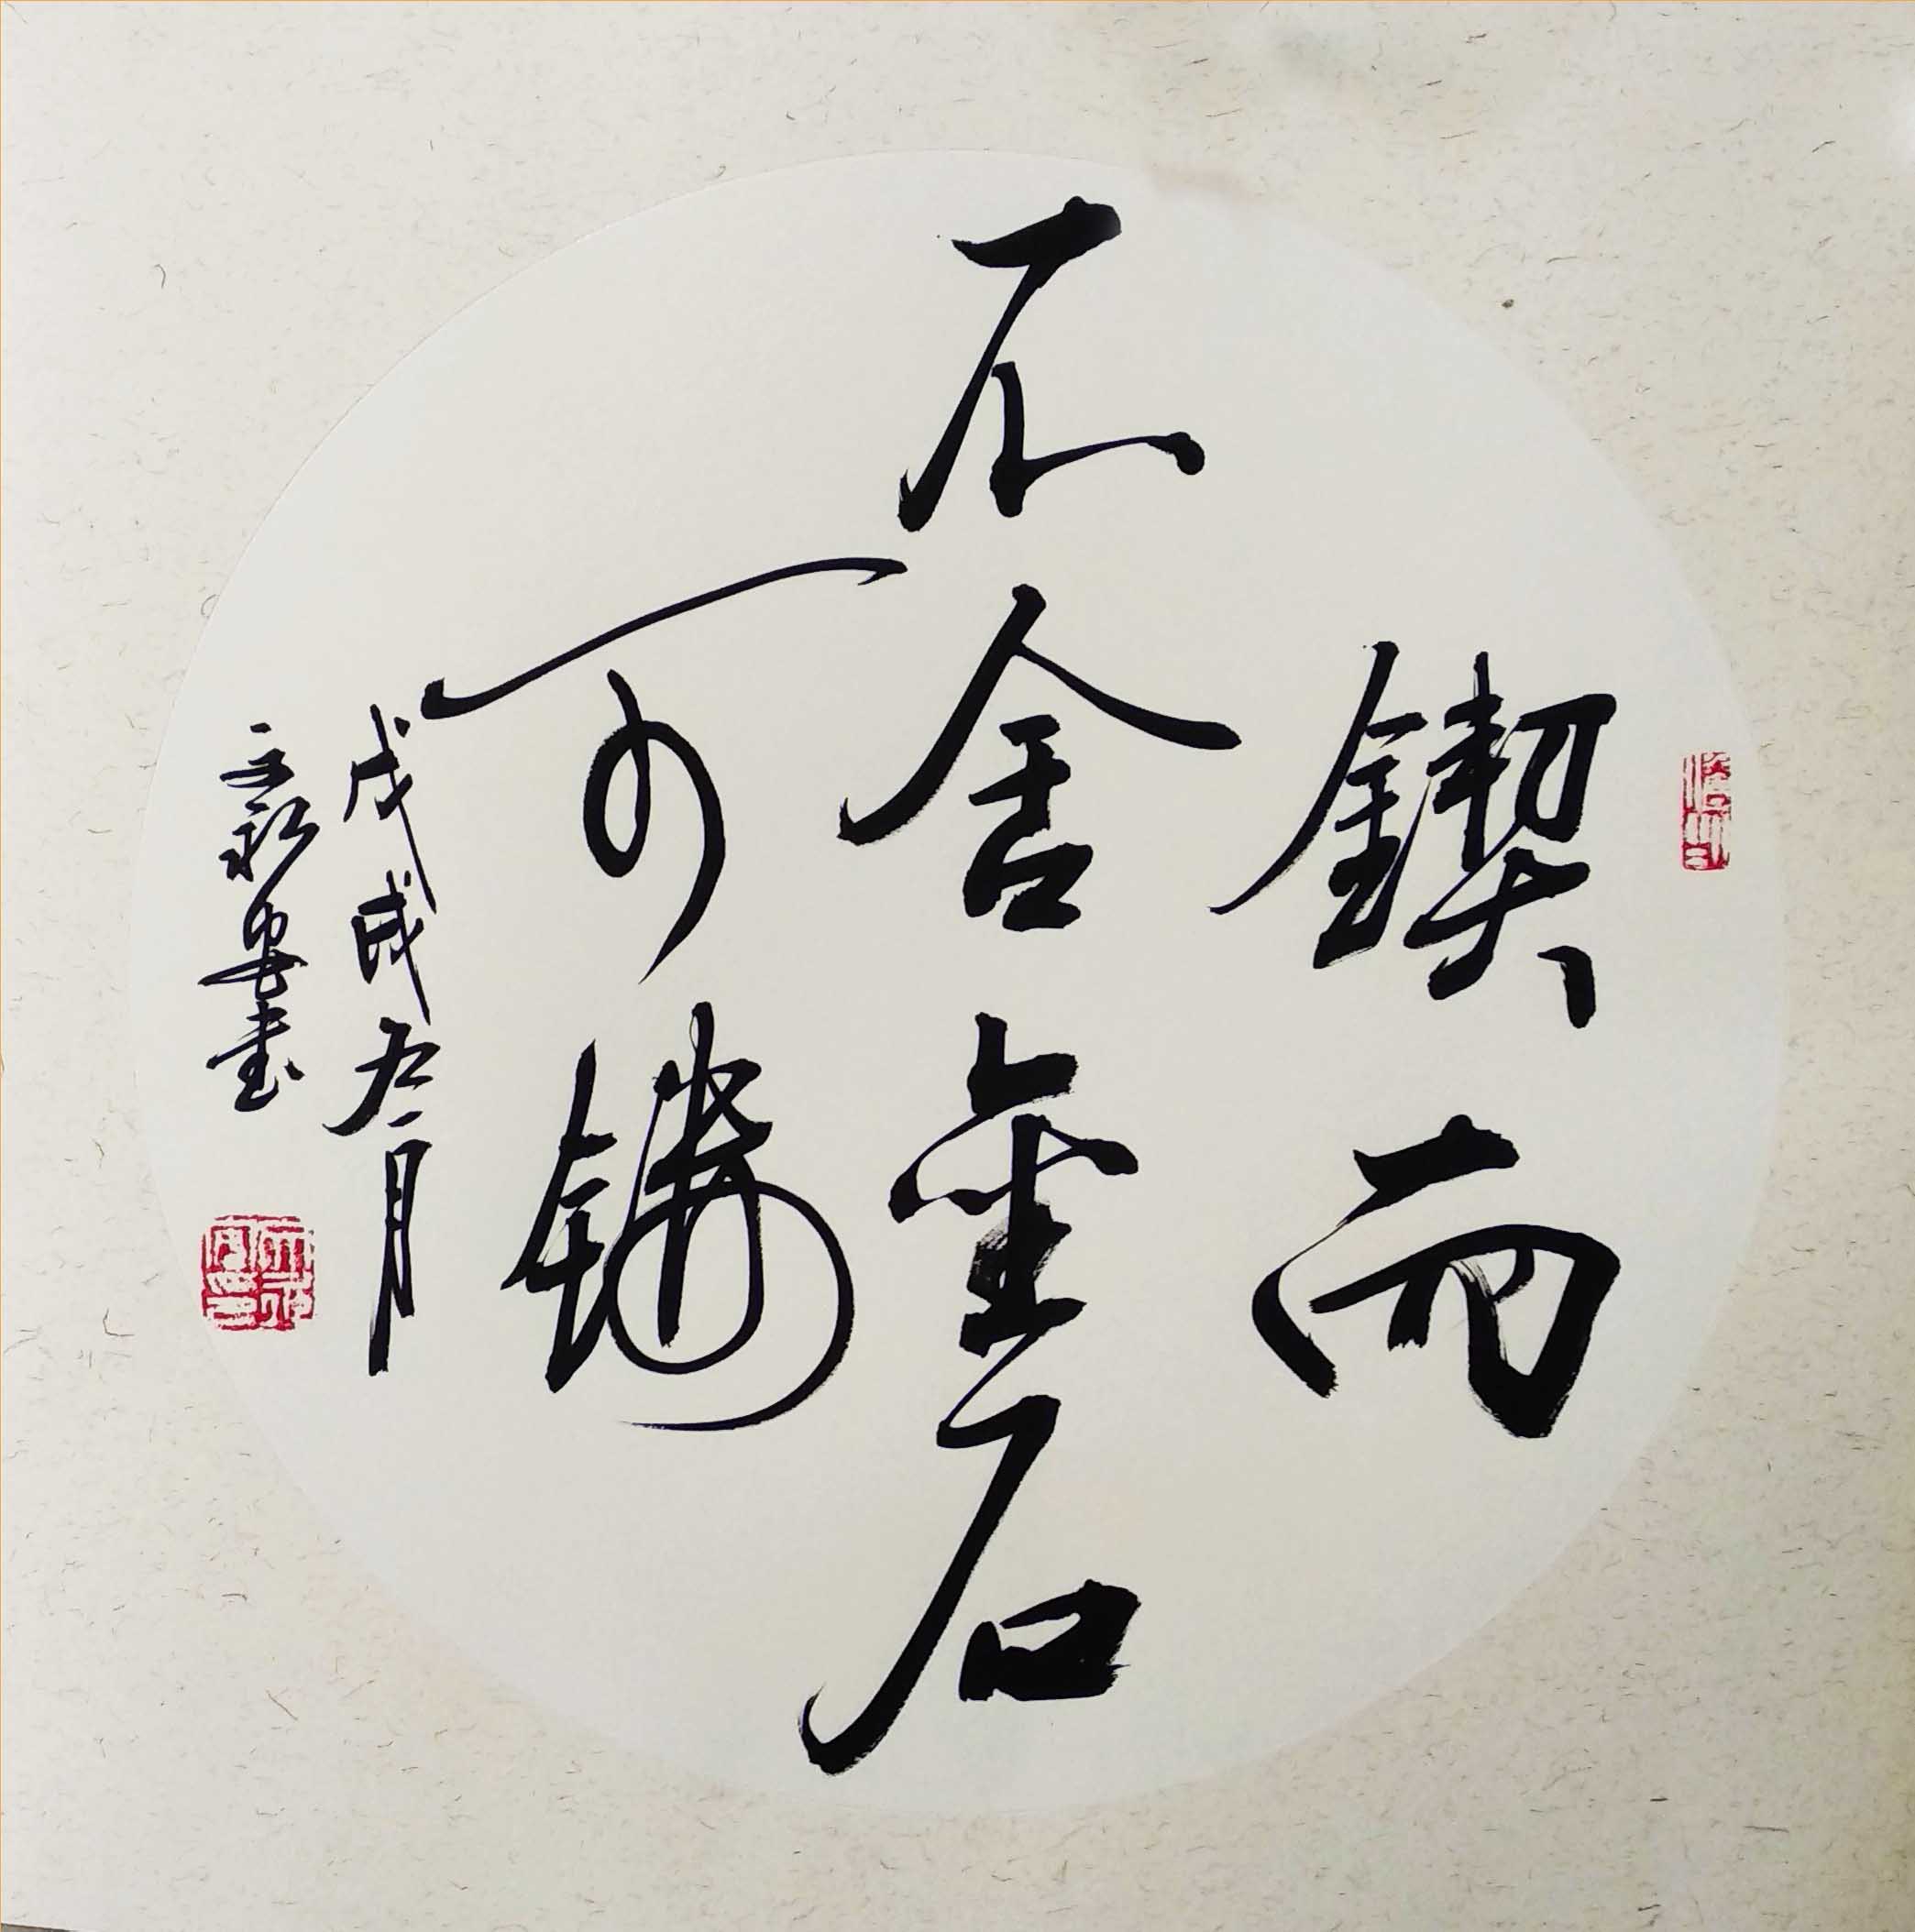 锲而
不舍金石
可镂
戊戌九月
书